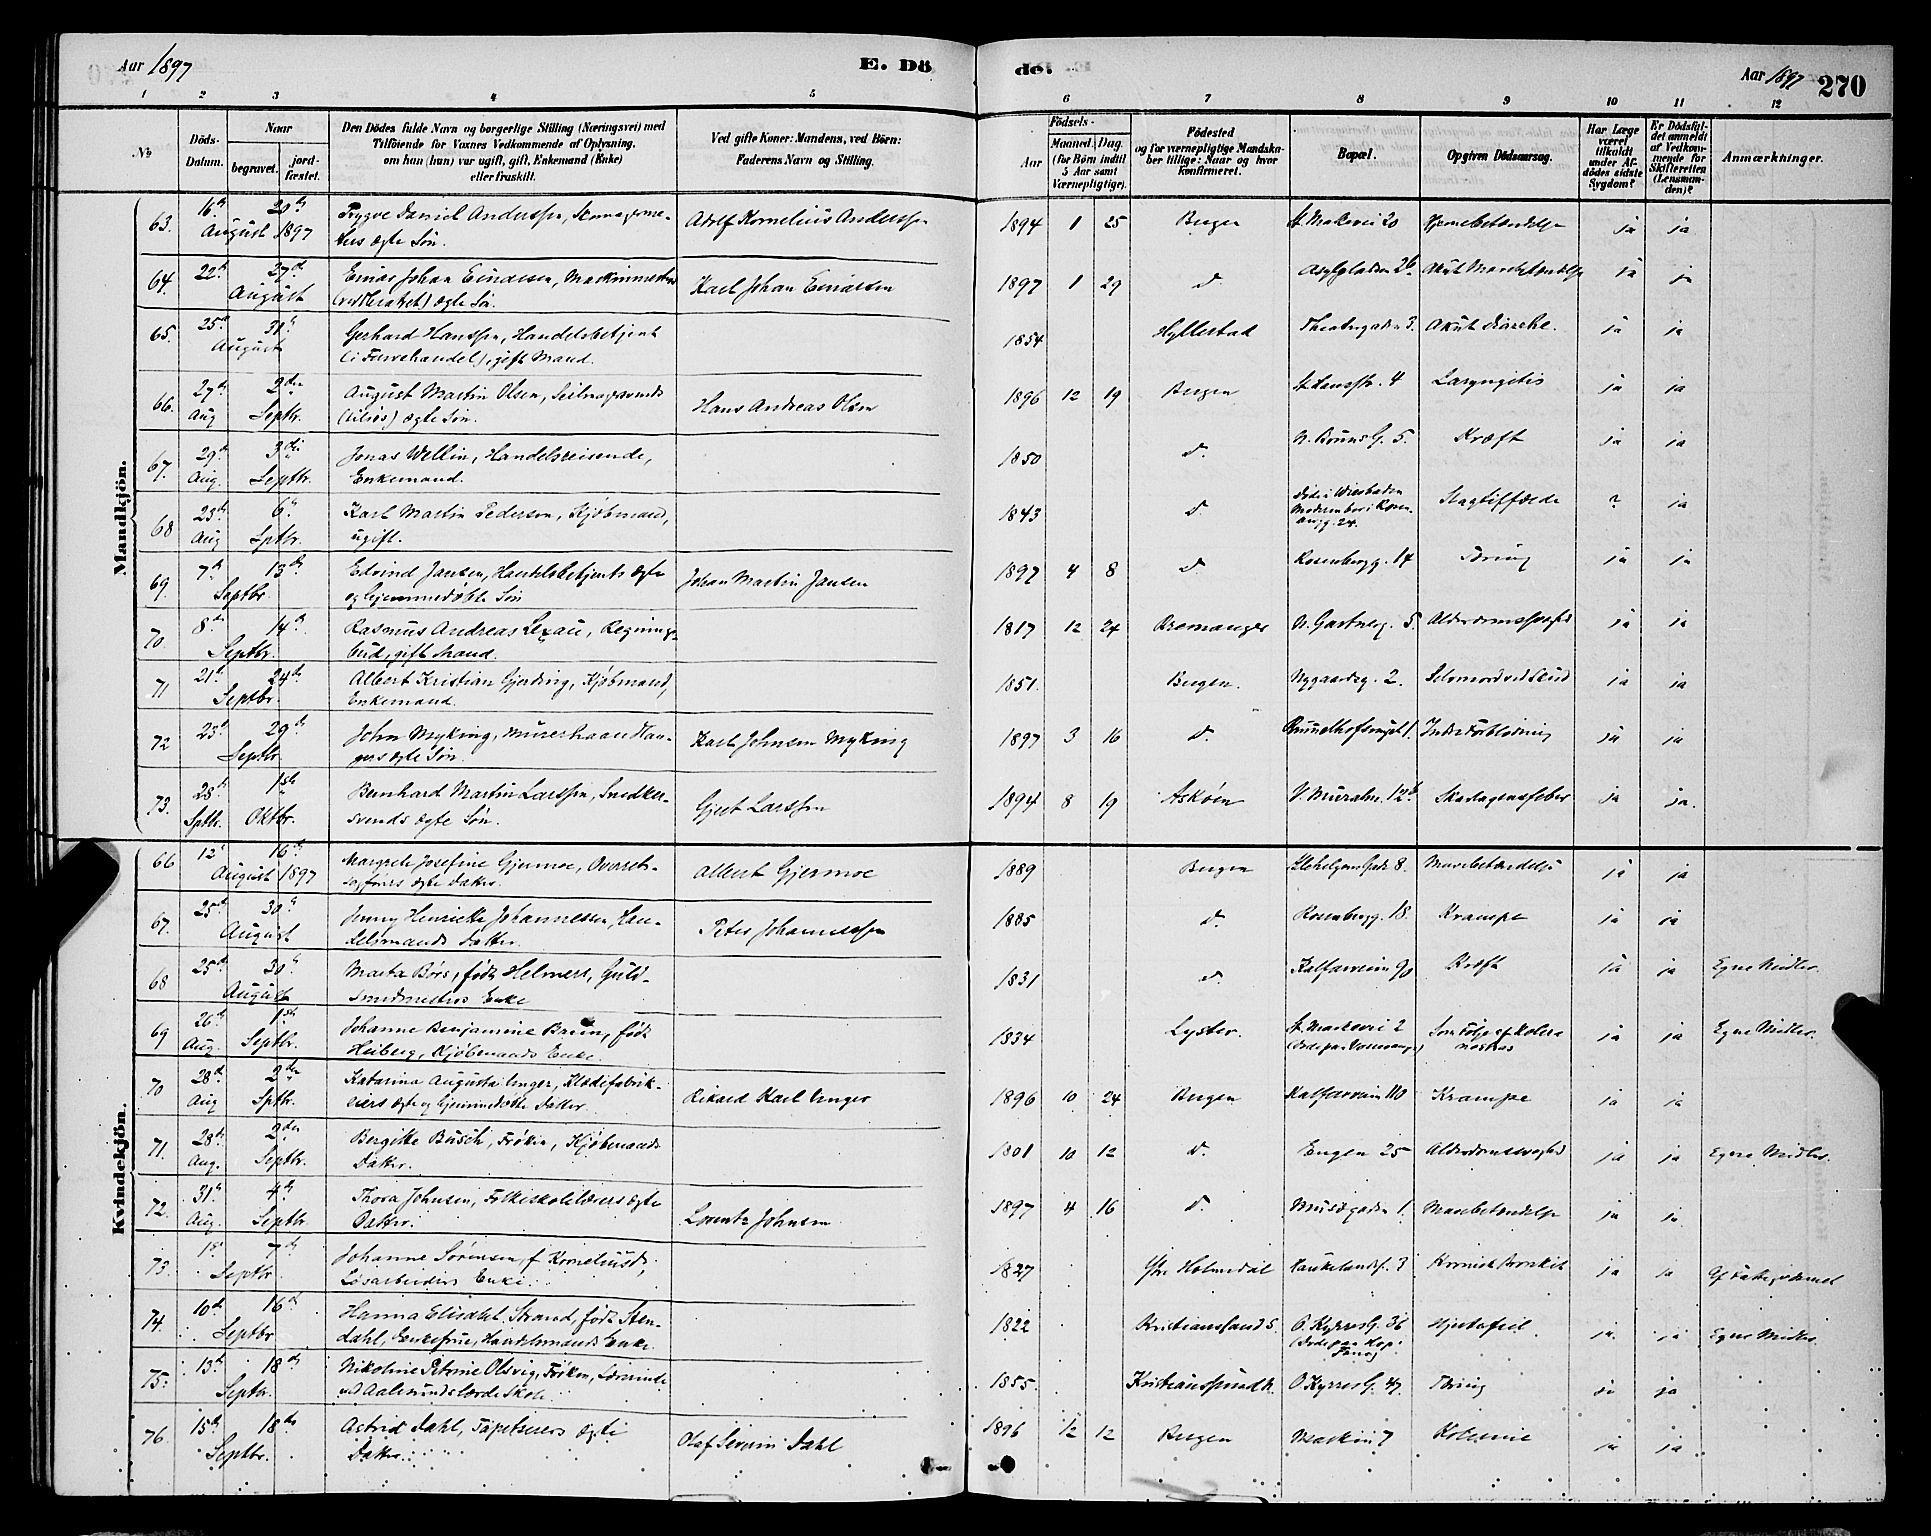 Aar 1897
E. Dö
de.
Aar 1897
270
1 2 3 4 5 6 7 8 9 10 11 12
No
Döds-Datum.
Naar
begravet.
jord-fæstet.
Den Dödes fulde Navn og borgerlige Stilling (Næringsvei) med
Tilföiende for Voxnes Vedkommende af Oplysning,
om han (hun) var ugift, gift, Enkemand (Enke)
eller fraskilt.
Ved gifte Koner: Mandens, ved Börn:
Faderens Navn og Stilling.
Födsels-
Aar
Maaned.
Dag.
(for Börn indtil
5 Aar samt
Værnepligtige).
Födested
og for værnepligtige Mandska-
ber tillige: Naar og hvor
konfirmeret.
Bopæl.
Opgiven Dödsaarsag.
Har Læge
været
tilkaldt
under Af-
dödes sidste
Sygdom?
Er Dödsfal-
det anmeldt
af Vedkom-
mende for
Skifteretten
(Lensman-
den)?
Anmærkninger.
Mandkjön.
63. 16de 20de August 1897 Trygve Daniel Anderssen,
ters ægte Søn. Adolf Kornelius Anderssen 1894 1 25 Bergen St. Markevei 20 Hjernebetændelse ja ja
64. 22de 27de August Einar Johan Einarsen, Maskinmesters
ægte Søn. Karl Johan Einarsen 1897 1 29 d. Asylgaden 26 Akut Mavebetændelse ja ja
65. 25de 31te August Gerhard Hanssen, Handelsbetjent
(i Farvehandel), gift Mand. 1854 Hyllestad Theatergaden 3. Akut diarrhe. ja ja
66. 27de Aug 2den Septbr. August Martin Olsen, Seilmagersvends
ægte Søn. Hans Andreas Olsen 1896 12 19 Bergen St. Hansstr. 4 Laryngitis ja ja
67. 29de Aug. 3die Septbr. Jonas Wellin, Handelsreisende,
Enkemand. 1850 d. N. Bruns G. 5. Kræft ja ja
68 23de Aug 6te Sptbr. Karl Martin Pedersen, Kjøbmand,
ugift. 1843 d. Døde i Wiesbaden
Moderen bor i Rosen-
bergg. 24. Slagtilfælde ? ja
69. 7de 13de Septbr. Edvind Jansen, Handelsbetjents ægte
og hjemmedøbte Søn Johan Martin Jansen 1897 4 8 d. Rosenbergg. 14 Tæring ja ja
70 8de 14de Septbr. Rasmus Andreas Lexau, Regnings-
bud, gift Mand. 1817 12 24 Bremanger N. Gartnerg. 5. Alderdomssvaghed ja ja
71 21de 24de Septbr. Albert Kristian Gjerding, Kjøbmand,
Enkemand. 1851. Bergen. Nygaardsg. 2. Selvmord ved Skud ja ja
72 23de 29de Septbr. John Myking, Murerhaandlan-
gers ægte Søn. Karl Johnsen Myking 1897 3 16 d. 1. Indre Forblødning ja ja
73. 28de Sptbr. 1ste Oktbr. Bernhard Martin Larssen, Snedker-
svends ægte Søn. Gjert Larssen 1894 8 19 Askøen V. Muralm. 12b Skarlagensfeber ja ja.
Kvindekjön.
66 12te 16de August 1897 Margrete Josefine Gjermoe, Overret-
sagførers ægte Datter. Albert Gjermoe 1889 Bergen 8. Mavebetændelse ja ja
67. 25de 30te August Jenny Henrikke Johannessen, Han-
delsmands Datter. Peter Johannessen 1885 d. Rosenbergg. 18. Krampe ja ja
68 25de 30te August Marta Børs, født Helmers, Guld-
smedmesters Enke 1831 d. Kalfarveien 90 Kræft ja ja Egne Midler.
69 26de Aug. 1ste Septbr. Johanne Benjamine Bruun, født
Heiberg, Kjøbmands Enke. 1834 Lyster. St. Markevei 2 Som Følge af Kolera
nostras ja ja Egne Midler.
70 28de Aug 2den Sptbr. Katarina Augusta Unger, Klædefabrik-
eiers ægte og hjemmedøbte Datter. Rikard Karl Unger 1896 10 24 Bergen Kalfarveien 110 Krampe ja ja
71. 28de Aug. 2den Septbr. Bergitte Busch, Frøken, Kjøbmands
Datter. 1801 10 12 d. Engen 25 Alderdomssvaghed ja ja Egne Midler.
72. 31te Aug. 4de Septbr. Thora Johnsen, Folkeskolelærers ægte
Datter. Lorentz Johnsen 1897 4 16 d. Musægaden 1. Mavebetændelse ja ja.
73. 1ste 7de Septbr. Johanne Sørensen, f. Korneliusd.,
Løsarbeiders Enke. 1827 Ytre Holmedal Haukelandsv. 3 Kronisk Bronkit ja ja Af Fattigvæsenet
74. 10de 16de Septbr Hanna Elisabet Strand, født Sten-
dahl, Enkefrue, Handelsmands Enke. 1822 Kristianssand S. O. Kyrres G. 36
Hjertefeil ja. ja Egne Midler
75. 13de 18de Septbr. Nikoline Petrine Olsvig, Frøken, Lærerinde
ved Aalesunds lærde Skole 1855. Kristianssund N. O. Kyrres G. 47. Tæring ja ja
76. 15de 18de Septbr. Astrid Dahl, Tapetserers ægte
Datter. Olaf Severin Dahl 1896 12 12 Bergen Marken 7 Kolerine ja ja